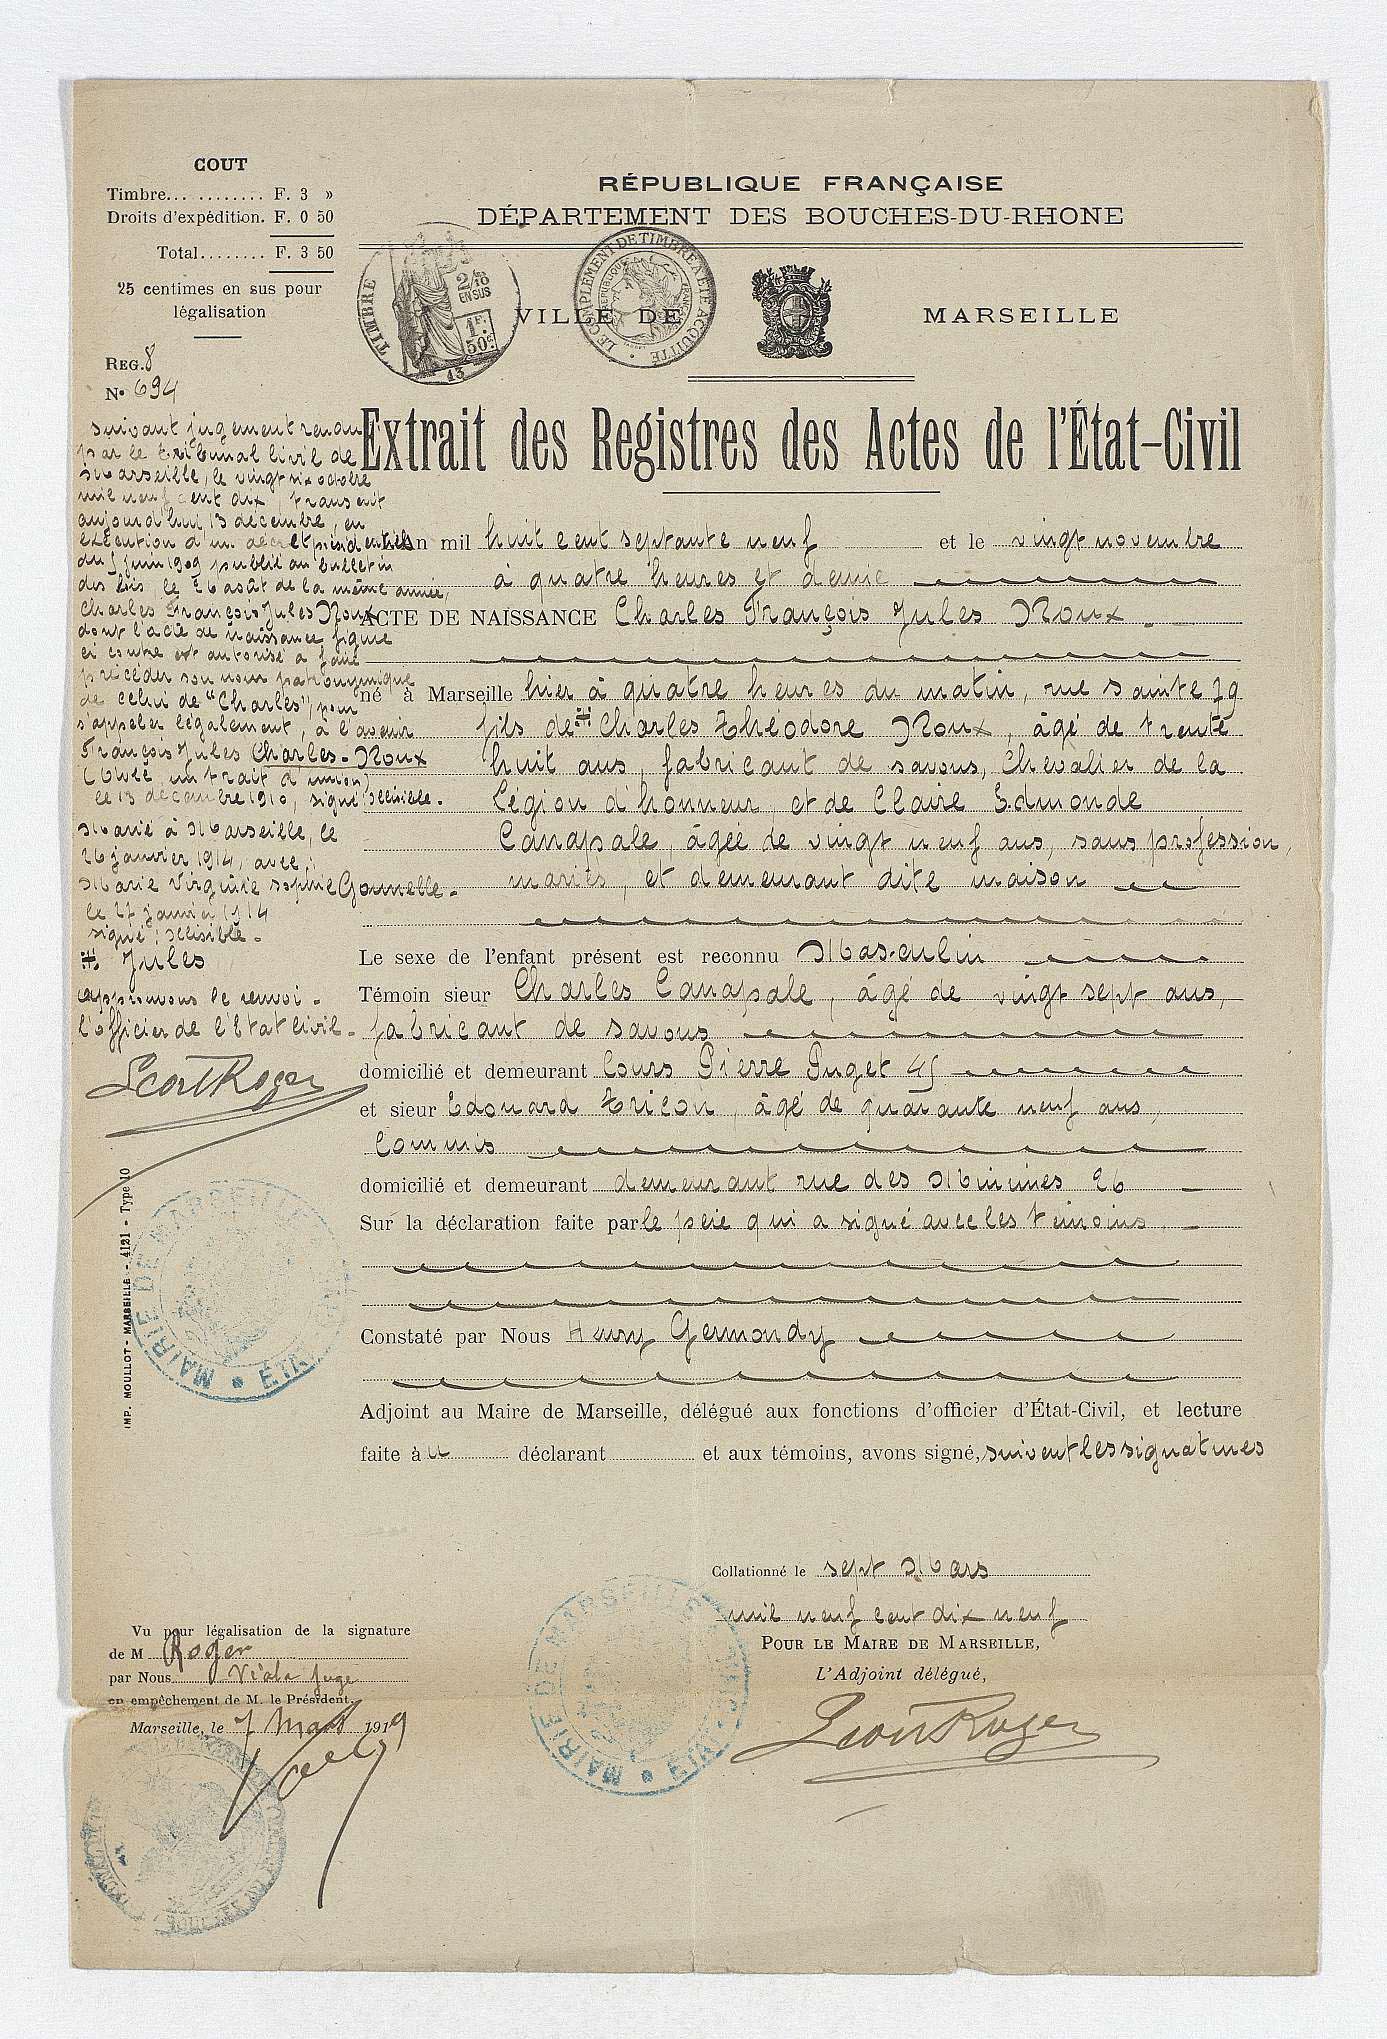 COUT
Timbre... ......... F. 3 »
Droits d'expédition. F. 0 50
Total........ F. 3 50
25 centimes en sus pour
légalisation
REG. 8
N° 694
RÉPUBLIQUE FRANÇAISE
DÉPARTEMENT DES BOUCHES-DU-RHONE
TIMBRE
2/10
EN SUS
1F.
50c
13
LE COMPLEMENT DE TIMBRE A ETE ACQUITTE
REPUBLIQUE FRANÇAISE
VILLE DE MARSEILLE
Extrait des Registres des Actes de l'État-Civil
suivant jugement rendu
par le tribunal civil de
Marseille, le vingt six octobre
mil neuf cent dix, transcrit
aujourd'hui 13 décembre, en
exécution d'un décret présidentiel
du 5 juin 1909 publié au bulletin
des lois le 26 août de la même année,
Charles François Jules Roux
dont l'acte de naissance figure
ci contre est autorisé à faire
précéder son nom patronymique
de celui de "Charles", pour
s'appeler légalement, à l'avenir
François Jules Charles-Roux
(avec un trait d'union)
le 13 décembre 1910, signé illisible.
Marié à Marseille, le
26 janvier 1914, avec :
Marie Virginie Sophie Gounelle.
le 27 janvier 1914
signé : illisible.
⌗ Jules
approuvons le renvoi.
l'officier de l'Etat Civil.
Léon Roger
L'An mil huit cent septante neuf et le vingt novembre
à quatre heures et demie
ACTE DE NAISSANCE Charles François Jules Roux
né à Marseille hier à quatre heures du matin, rue Sainte 79
fils de ⌗ Charles Théodore Roux, âgé de trente
huit ans, fabricant de savons, Chevalier de la
Légion d'honneur, et de Claire Edmonde
Canaple, âgée de vingt neuf ans, sans profession,
mariés, et demeurant dite maison
Le sexe de l'enfant présent est reconnu Masculin
Témoin sieur Charles Canaple, âgé de vingt sept ans,
fabricant de savons
domicilié et demeurant Cours Pierre Puget 45
et sieur Edouard Tricon, âgé de quarante neuf ans,
Commis
domicilié et demeurant demeurant rue des Minimes 26
Sur la déclaration faite par le père qui a signé avec les témoins.
Constaté par Nous Henry Germondy
Adjoint au Maire de Marseille, délégué aux fonctions d'officier d'État-Civil, et lecture
faite au déclarant et aux témoins, avons signé, suivent les signatures
IMP. MOULLOT - MARSEILLE - 4121 - Type 10
MAIRIE DE MARSEILLE
Collationné le sept Mars
mil neuf cent dix neuf
POUR LE MAIRE DE MARSEILLE,
L'Adjoint délégué,
Léon Roger
MAIRIE DE MARSEILLE
Vu pour légalisation de la signature
de M Roger
par Nous Viala Juge
en empêchement de M. le Président.
Marseille, le 7 Mars 1919